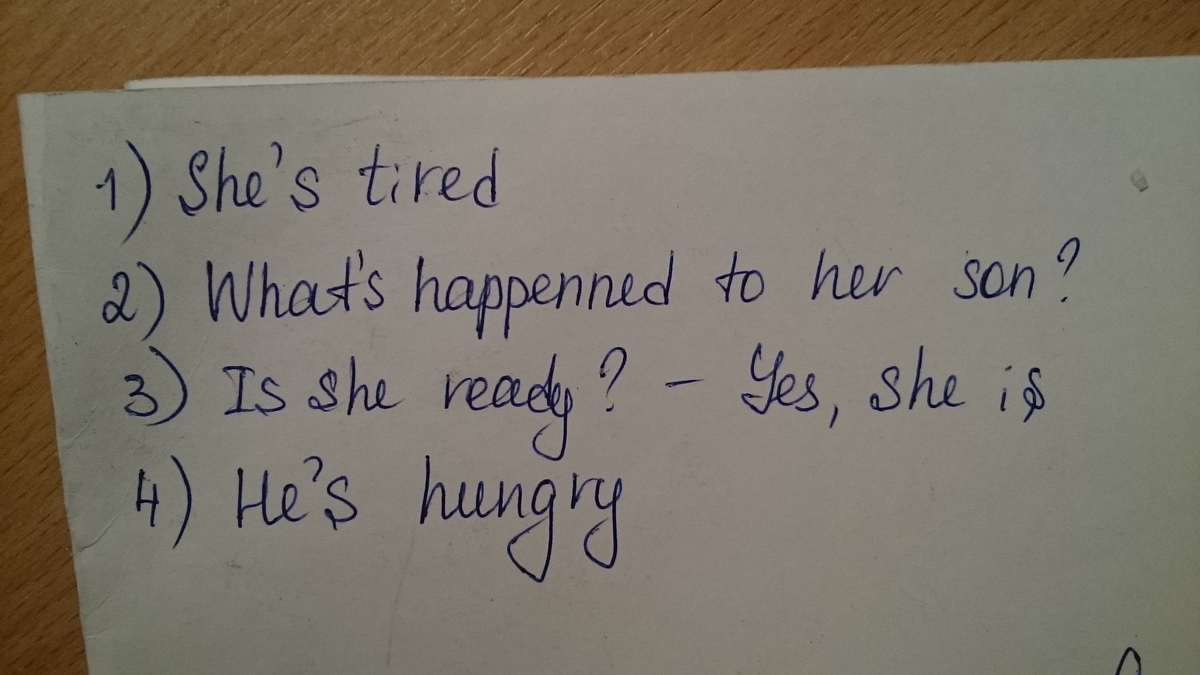 1) She's tired
2) What's happenned to her son?
3) Is she ready? - Yes, she is
4) He's hungry